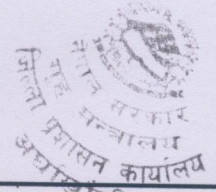 नेपाल सरकार
गृह मन्त्रालय
जिल्ला प्रशासन कार्यालय